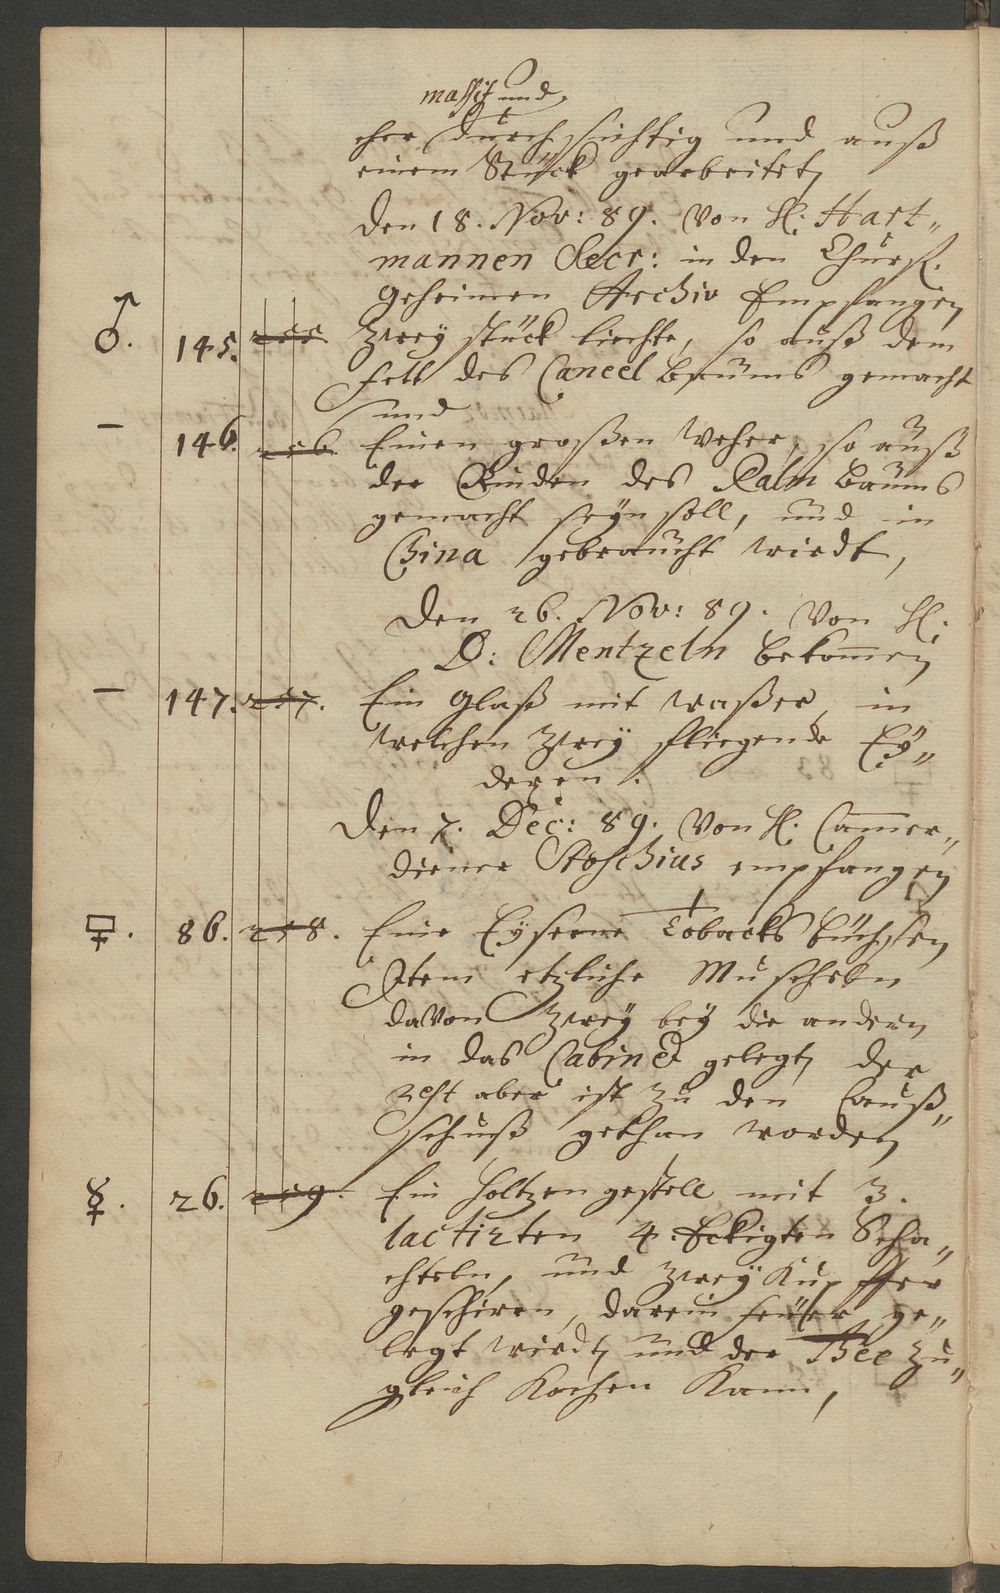 massif und
cher durchsichtig und auß
einem Stück gearbeitet,
den 18. Nov: 89. Von H: Hart„
mannen Secr: in den Churf.
geheimen Archiv Empfangen
♂. 145. Zwey stück liechte, so auß dem
fett des Caneel baums gemacht
und
– 146. 256. Einen großen Weher, so auß
der Rinden des Palm baums
gemacht seyn soll, und in
China gebraucht wirdt,
Den 26. Nov: 89. Von H:
D: Mentzeln bekom̄en
– 147. 257. Ein Glaß mit waßer, in
welchen Zwey fliegende Ey„
dexen.
Den 7. Dec: 89. Von H. Cam̄er„
diener Stoschius empfangen
86. 258. Eine Eyserne Tobacks büchsen
Item etzliche Muscheln
davon Zwey bey die andern
in das Cabinet gelegt, der
rest aber ist zu den Lauß„
schuß gethan worden
☿. 26. 259. Ein holtzen gestell mit 3.
lactirten 4. Eckigten Scha„
chteln, und Zwey Kupffer
geschirren, darein feüer ge„
legt wirdt, und der Thee Zu„
gleich Kochen Kann,